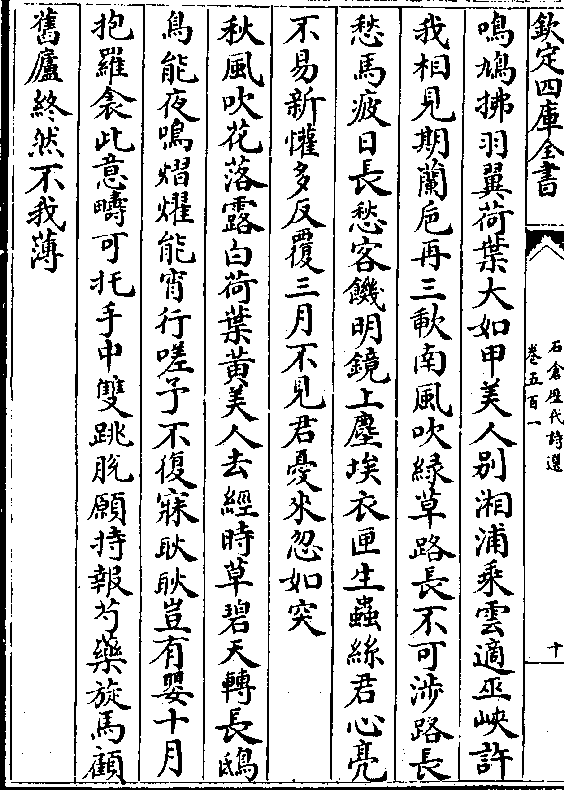 欽定四庫全書
石倉歷代詩選
卷五百一
十
鳴鳩拂羽翼荷葉大如甲美人别湘浦乘雲適巫峽許
我相見期蘭巵再三歃南風吹緑草路長不可涉路長
愁馬疲日長愁客饑明鏡上塵埃衣匣生蟲絲君心亮
不易新懽多反覆三月不見君憂來忽如突
秋風吹花落露白荷葉黃美人去經時草碧天轉長鴟
鳥能夜鳴熠燿能宵行嗟予不復寐耿耿豈有嬰十月
抱羅衾此意疇可托手中雙跳脫願持報芍藥旋馬顧
舊廬終然不我薄